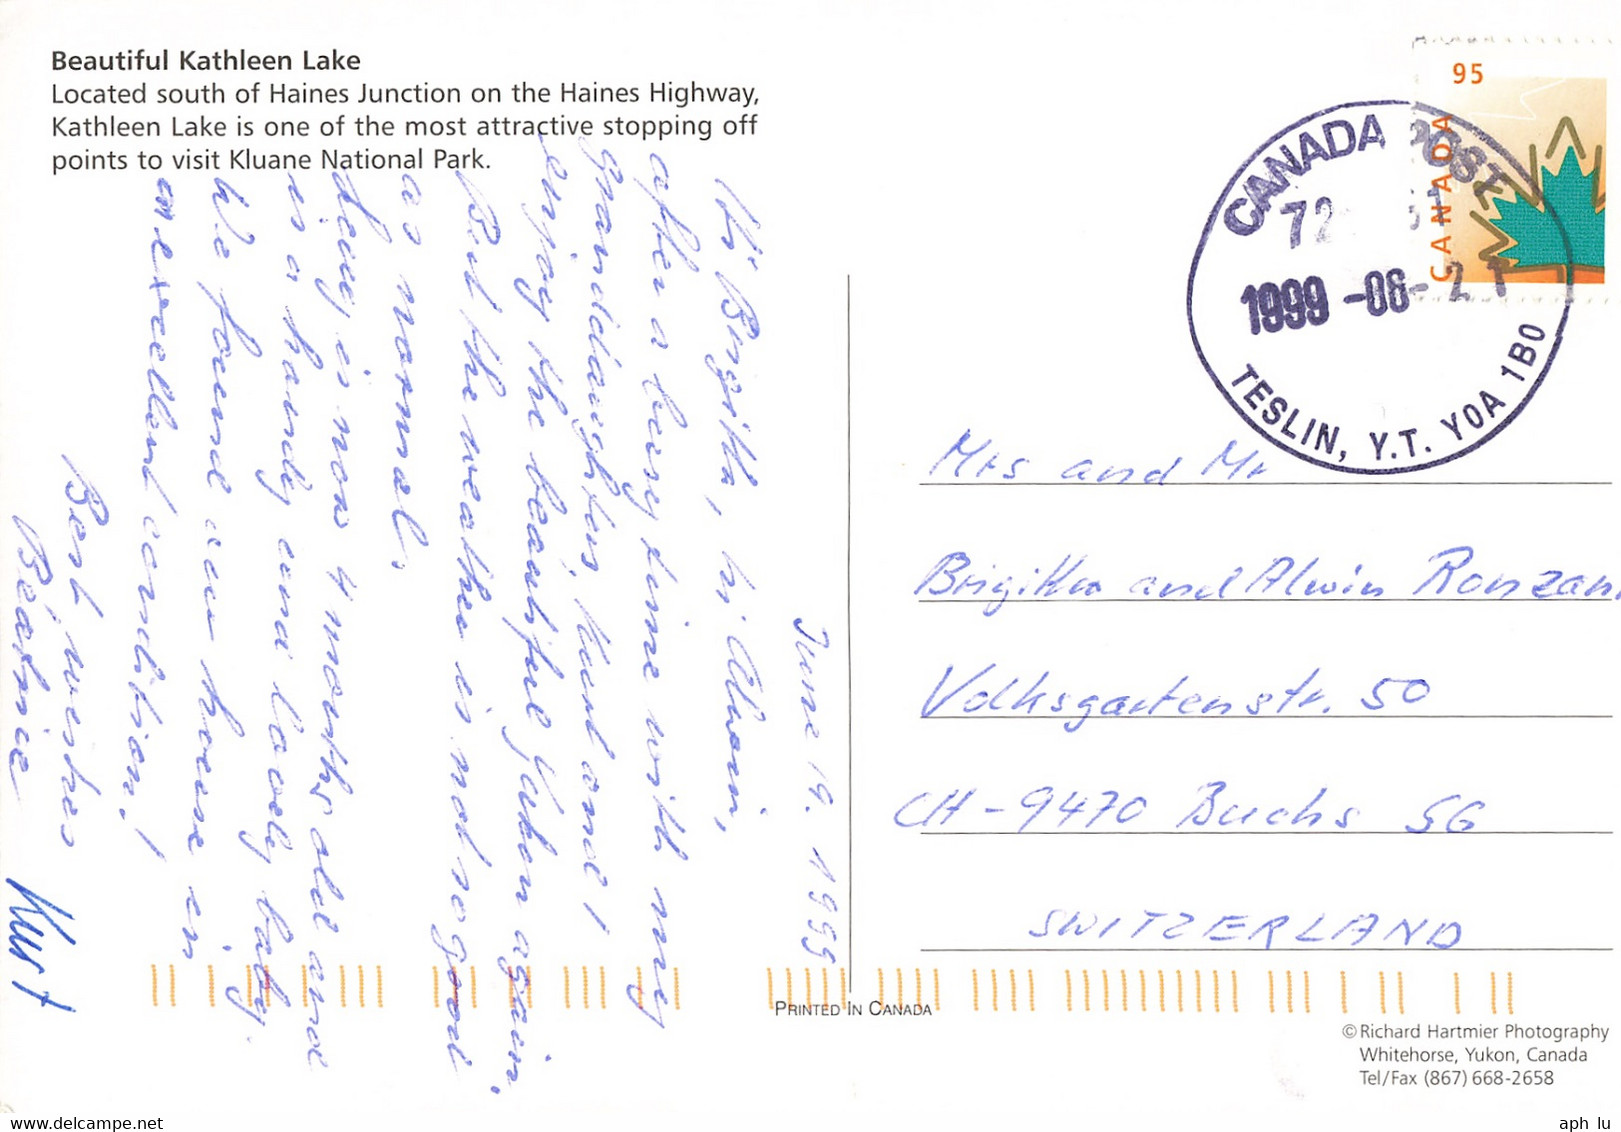 Beautiful Kathleen Lake
Located south of Haines Junction on the Haines Highway,
Kathleen Lake is one of the most attractive stopping off
points to visit Kluane National Park.
June 19. 1999
Hi Brigitta, hi Alwin,
after a long time with my
granddaughter, Kurt and I
enjoy the beautiful Yukon again.
But the weather is not so good
as normal.
is now 4 months old and
is a handy and lovely baby.
We found our house in
an excellent condition!
Best wishes
Béatrice
Kurt
95
CANADA
CANADA POST
72
1999-06-21
TESLIN, Y.T. Y0A 1B0
Mrs and Mr
Brigitta and Alwin Ronzani
Volksgartenstr. 50
CH-9470 Buchs SG
SWITZERLAND
PRINTED IN CANADA
©Richard Hartmier Photography
Whitehorse, Yukon, Canada
Tel/Fax (867) 668-2658
aph_lu